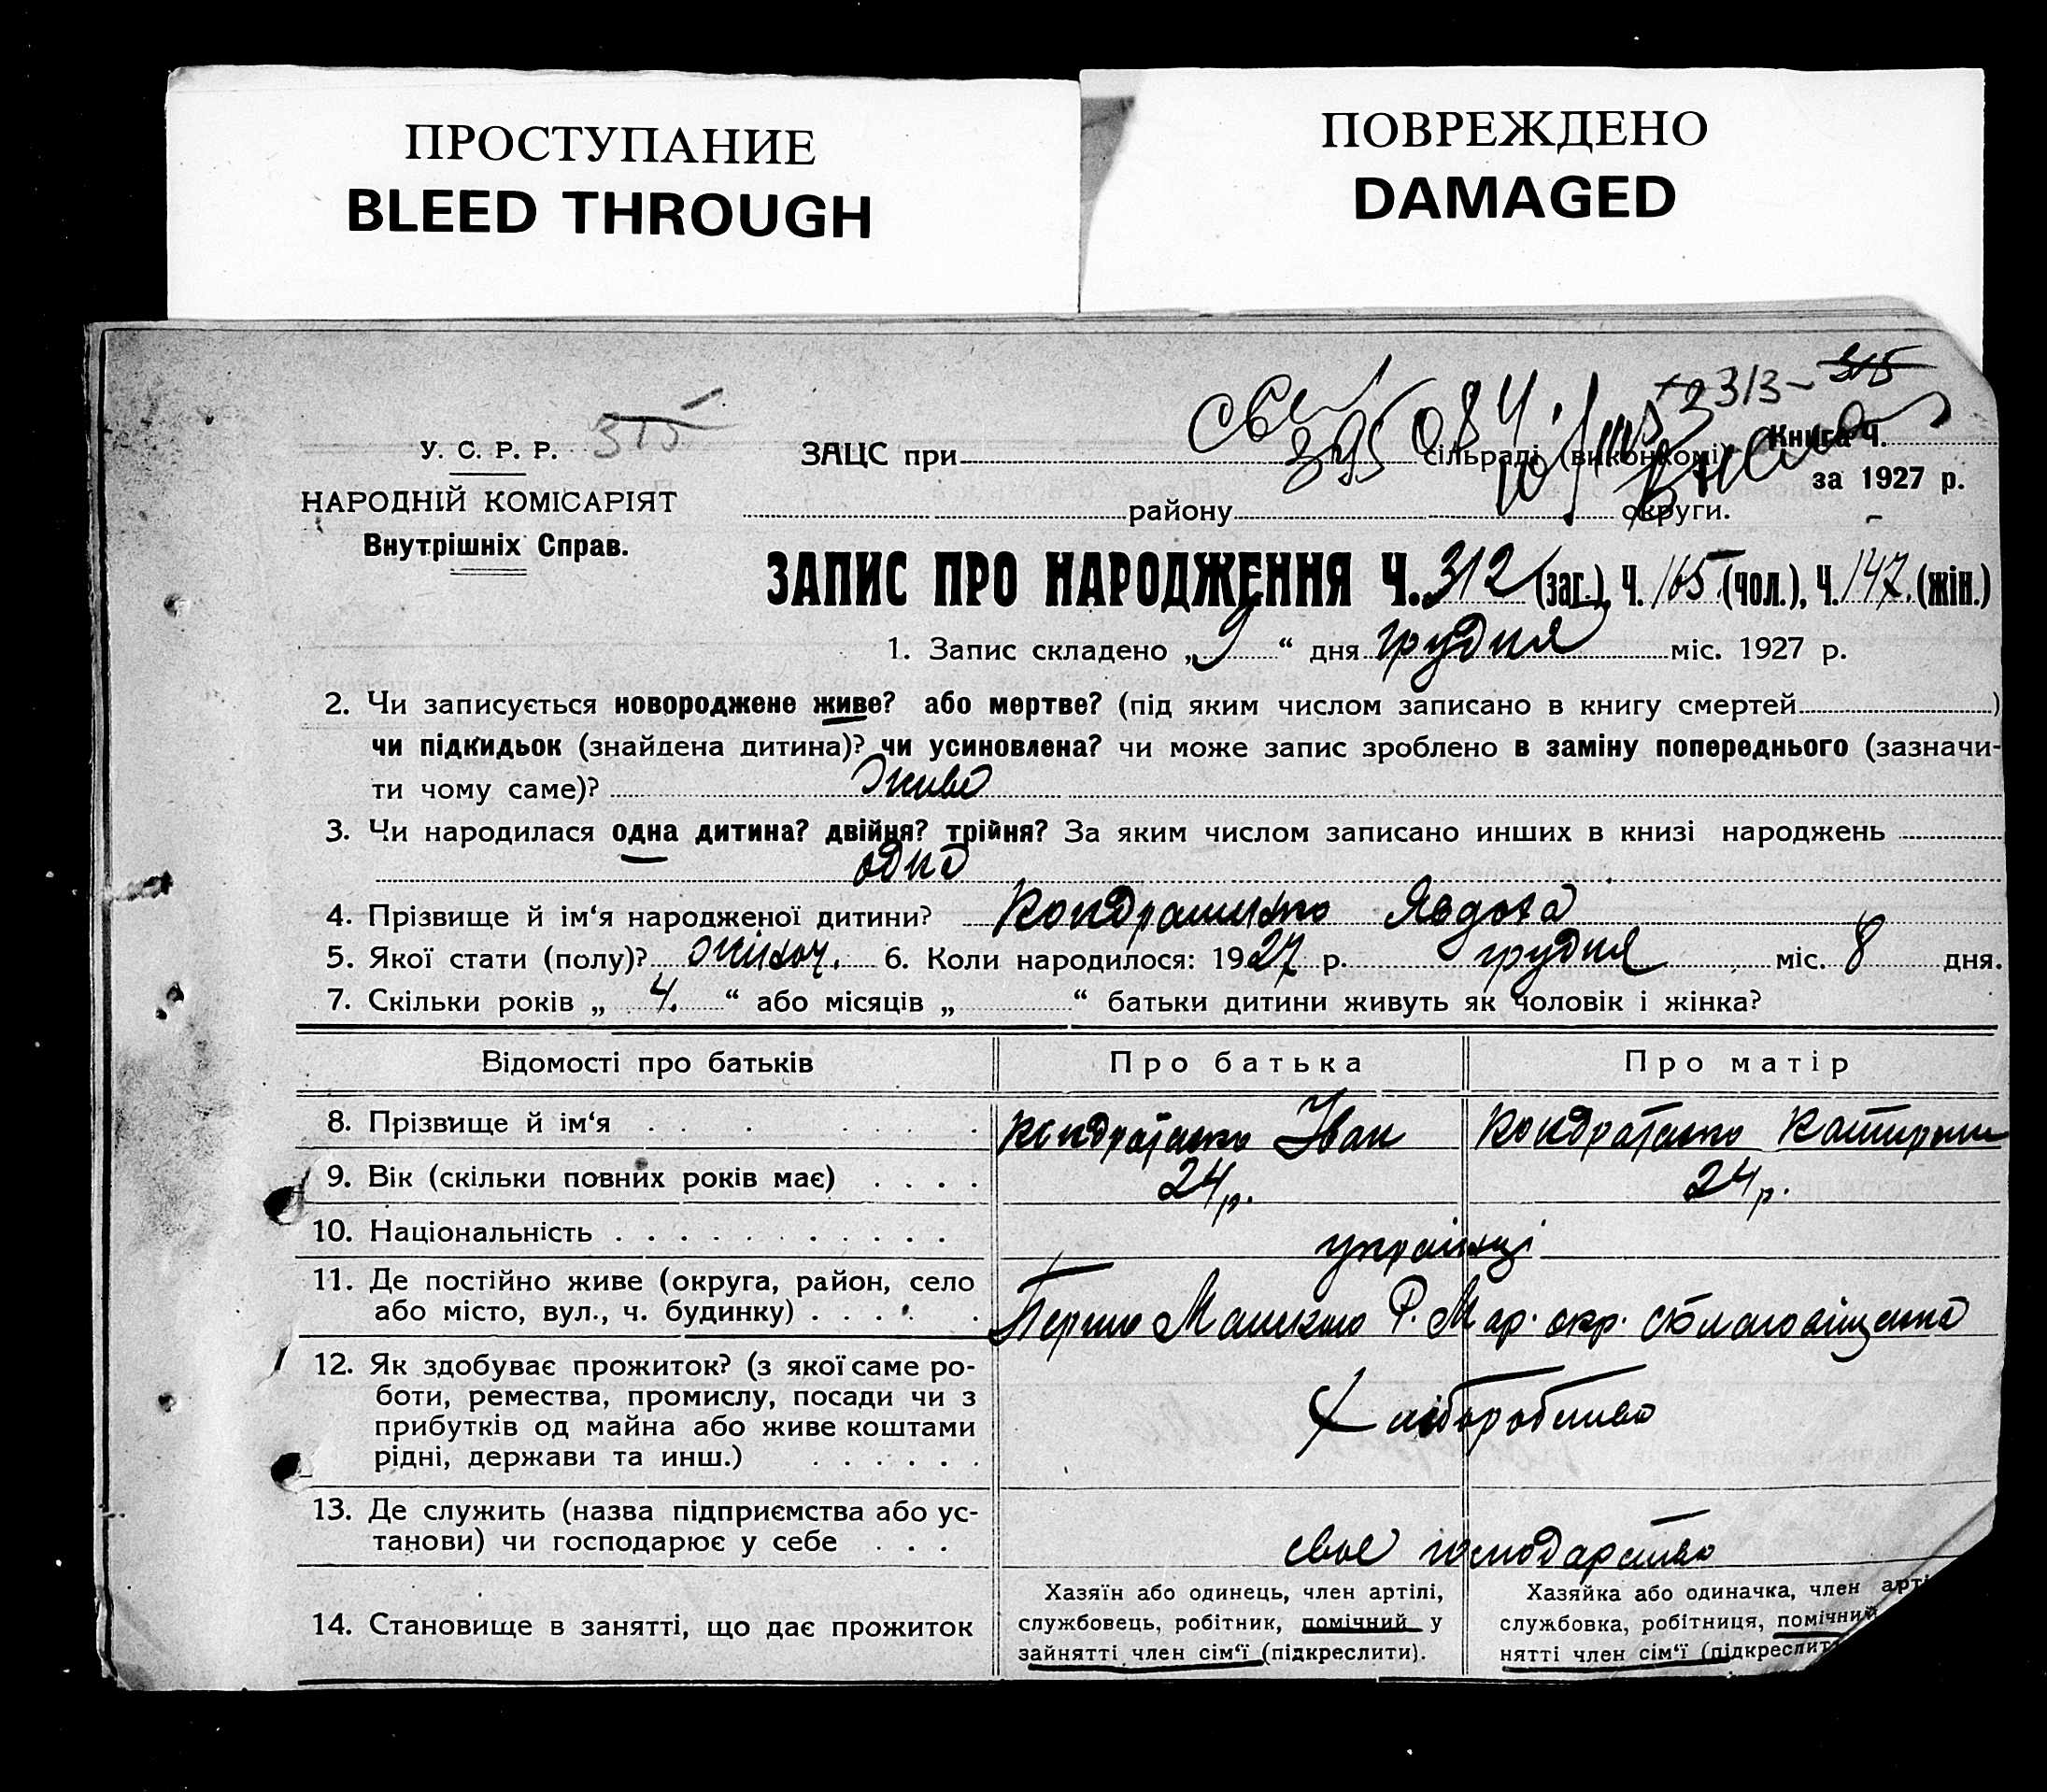 ПРОСТУПАНИЕ
BLEED THROUGH
ПОВРЕЖДЕНО
DAMAGED
313 - 315
У. С. Р. Р. 315
ЗАЦС при сільраді (виконкомі) Книга Ч.
за 1927 р.
НАРОДНІЙ КОМІСАРІЯТ
району округи.
Внутрішніх Справ.
ЗАПИС ПРО НАРОДЖЕННЯ Ч. 312 (заг.), Ч. 165 (чол.), Ч. 147. (жін.)
1. Запис складено „ 9 “ дня грудня міс. 1927 р.
2. Чи записується новороджене живе? або мертве? (під яким числом записано в книгу смертей )
чи підкидьок (знайдена дитина)? чи усиновлена? чи може запис зроблено в заміну попереднього (зазначи-
ти чому саме)? живе
3. Чи народилася одна дитина? двійня? трійня? За яким числом записано инших в книзі народжень
одно
4. Прізвище й ім‘я народженої дитини? Явдоха
5. Якої стати (полу)? жіноч. 6. Коли народилося: 1927 р. грудня міс. 8 дня.
7. Скільки років „ 4. “ або місяців „ “ батьки дитини живуть як чоловік і жінка?
Відомості про батьків Про батька Про матір
8. Прізвище й ім‘я . . . . . . . Іван
9. Вік (скільки повних років має) . . . . 24 р. 24 р.
10. Національність . . . . . . . . . . . українці
11. Де постійно живе (округа, район, село
або місто, вул., ч. будинку) . . . . . Р. Мар. окр.
12. Як здобуває прожиток? (з якої саме ро-
боти, ремества, промислу, посади чи з
прибутків од майна або живе коштами
рідні, держави та инш.) . . . . . .
хліборобство
13. Де служить (назва підприємства або ус-
танови) чи господарює у себе . . . своє господарство
14. Становище в занятті, що дає прожиток
Хазяїн або одинець, член артілі,
службовець, робітник, помічний у
зайнятті член сім‘ї (підкреслити).
Хазяйка або одиначка, член арті
службовка, робітниця, помічний
нятті член сім‘ї (підкреслит